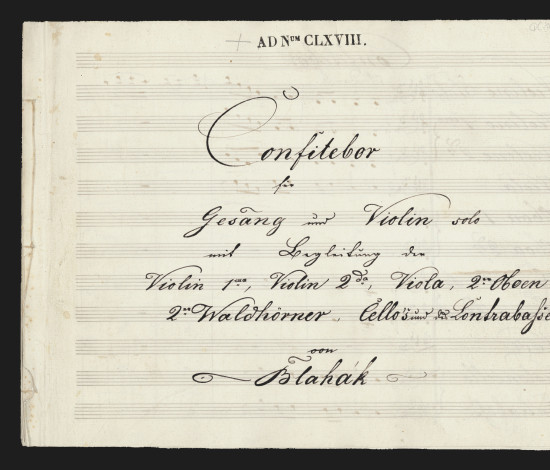 AD Num CLXVIII.
Confitebor
für
Gesang und Violin solo
mit Begleitung der
Violin 1ma, Violin 2da, Viola, 2en Oboen
2en Waldhörner, Cello's und des Contrabasse
von
Blahák